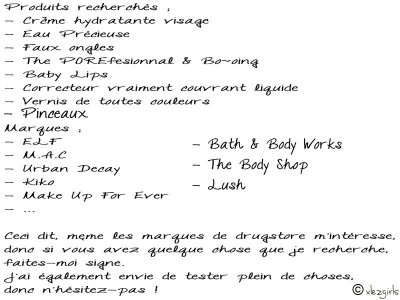 Produits recherchés :
- Crème hydratante visage
- Eau Précieuse
- Faux ongles
- The POREfesionnal & Bo~oing
- Baby Lips
- Correcteur vraiment couvrant liquide
- Vernis de toutes couleurs
- Pinceaux
Marques :
- ELF
- M.A.C
- Urban Decay
- Kiko
- Make Up For Ever
- ...
- Bath & Body Works
- The Body Shop
- Lush
Ceci dit, même les marques de drugstore m'intéresse,
donc si vous avez quelque chose que je recherche,
faites-moi signe.
J'ai également envie de tester plein de choses,
donc n'hésitez-pas !
© xlezgirls